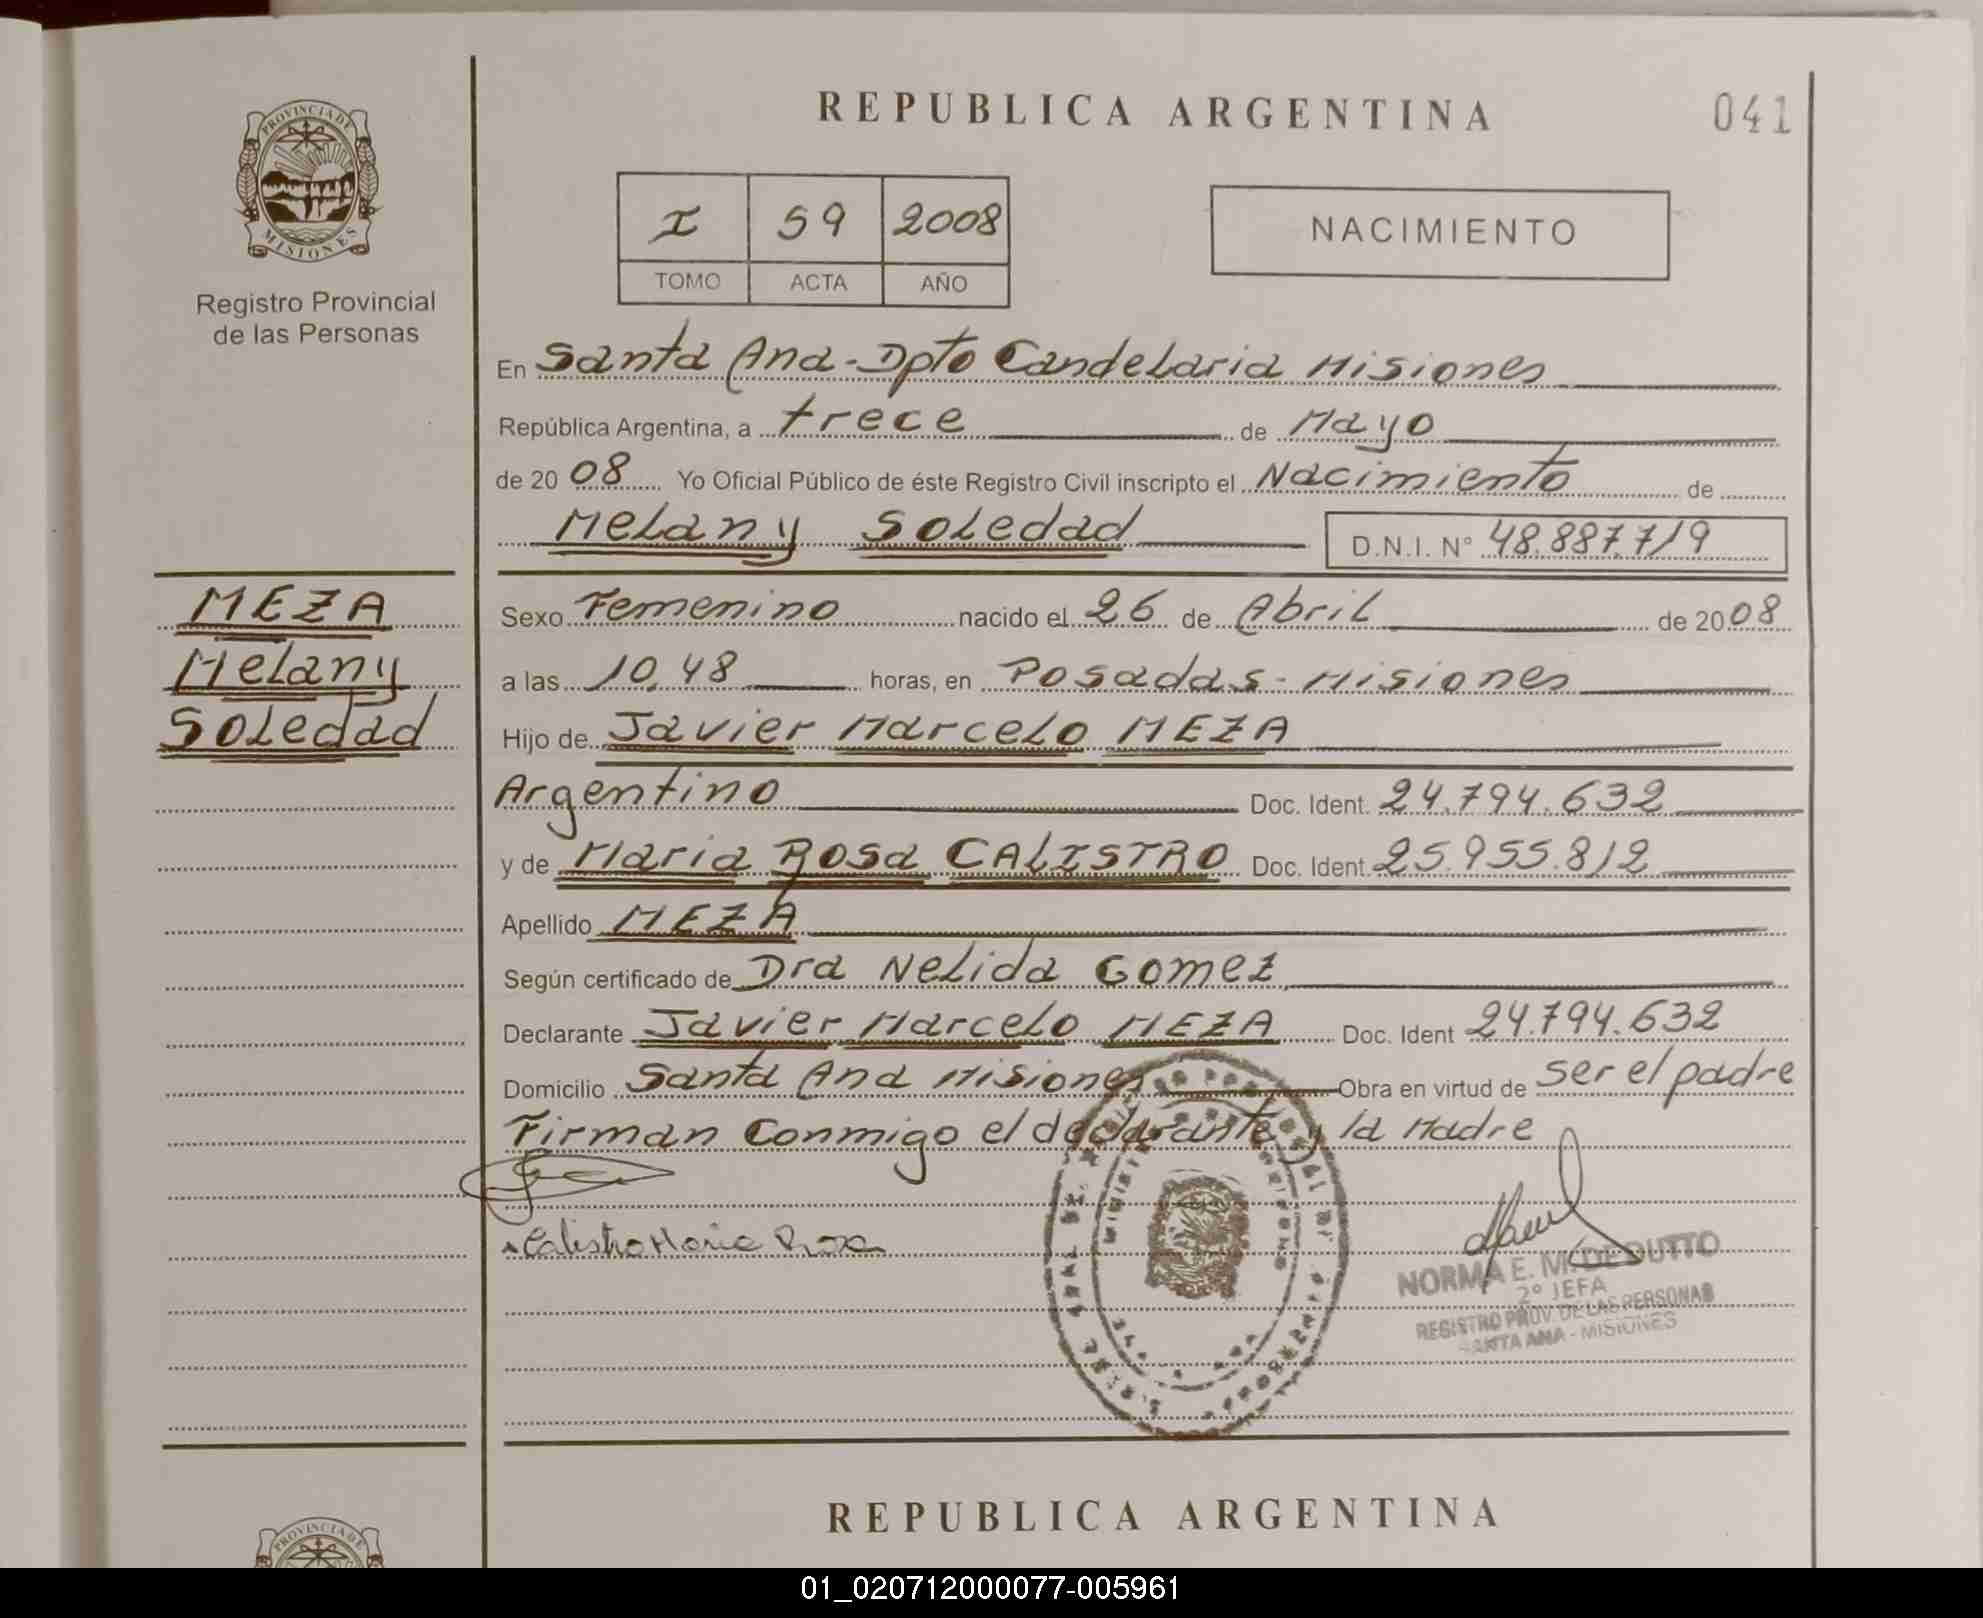 PROVINCIA DE
MISIONES
Registro Provincial
de las Personas
MEZA
Melany
Soledad
REPUBLICA ARGENTINA
041
I 59 2008
TOMO ACTA AÑO
NACIMIENTO
En Santa Ana - Dpto Candelaria Misiones
República Argentina, a trece de Mayo
de 2008 Yo Oficial Público de éste Registro Civil inscripto el Nacimiento de
Melany Soledad D.N.I. N° 48.887.719
Sexo Femenino nacido el 26 de Abril de 2008
a las 10,48 horas, en Posadas - Misiones
Hijo de Javier Marcelo MEZA
Argentino Doc. Ident. 24.794.632
y de Maria Rosa CALISTRO Doc. Ident. 25.955.812
Apellido MEZA
Según certificado de Dra Nelida Gomez
Declarante Javier Marcelo MEZA Doc. Ident 24.794.632
Domicilio Santa Ana Misiones Obra en virtud de ser el padre
Firman Conmigo el declarante y la Madre
Calistro Maria Rosa
NORMA E. M. DE DUTTO
2° JEFA
REGISTRO PROV. DE LAS PERSONAS
SANTA ANA - MISIONES
REPUBLICA ARGENTINA
PROVINCIA DE
01_020712000077-005961